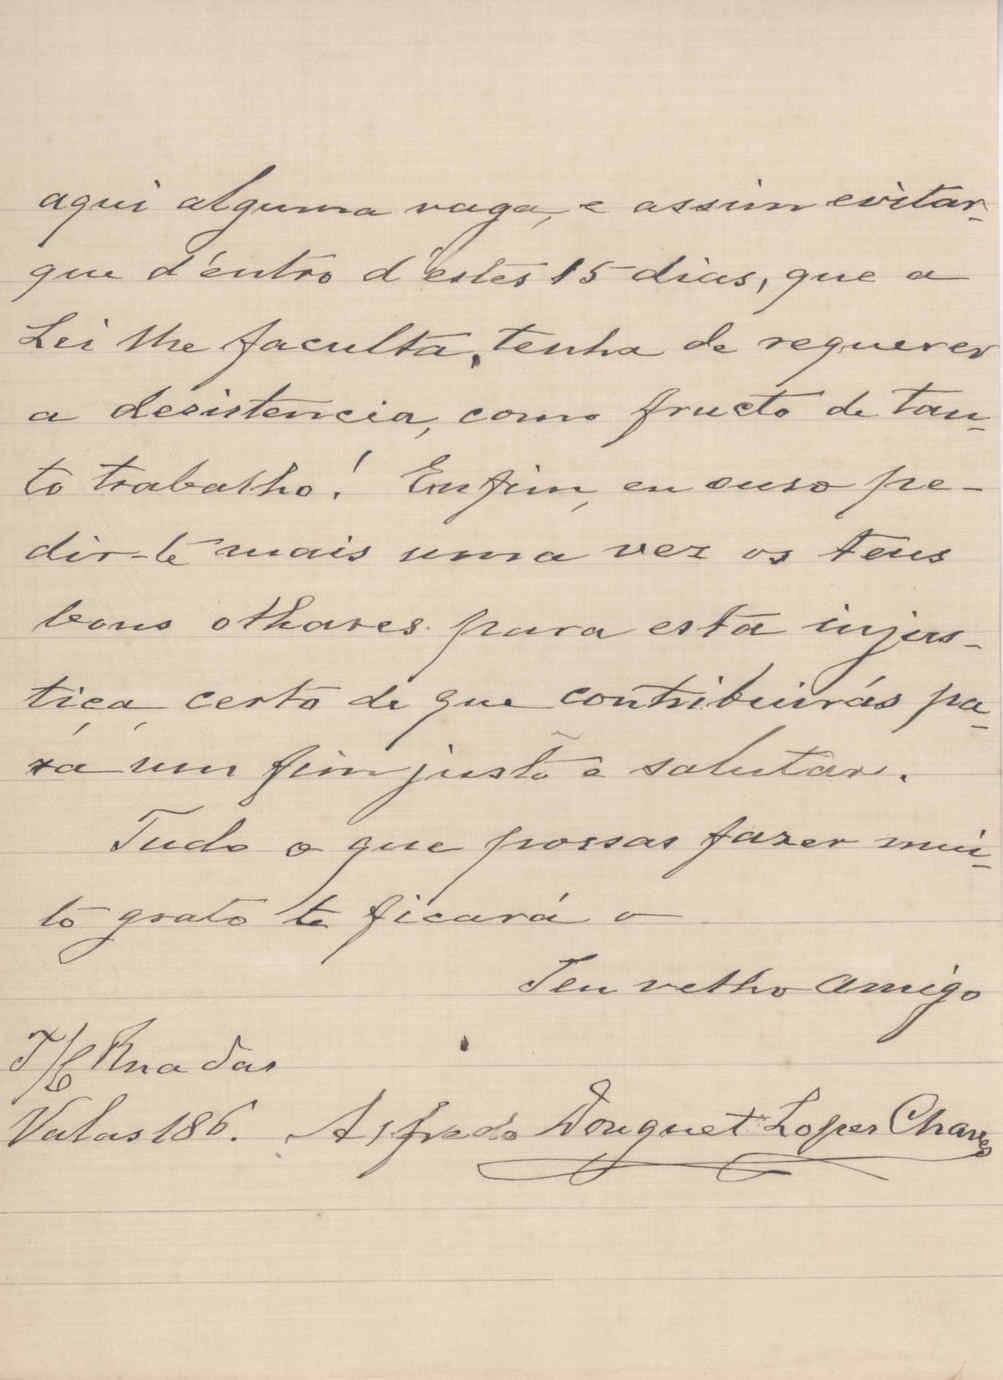 aqui alguma vaga, e assim evitar-
que d'entro d'estes 15 dias, que a
Lei lhe faculta, tenha de requerer
a desistencia, como fructo de tan-
to trabalho! Emfim, eu ouso pe-
dir-te mais uma vez os teus
bons olhares para esta injus-
tiça, certo de que contribuirás pa-
ra um fim justo e salutar.
Tudo o que possas fazer mui-
to grato te ficará o
Teu velho amigo
T/C Rua das
Valas 186. Alfredo Douguet Lopes Chaves